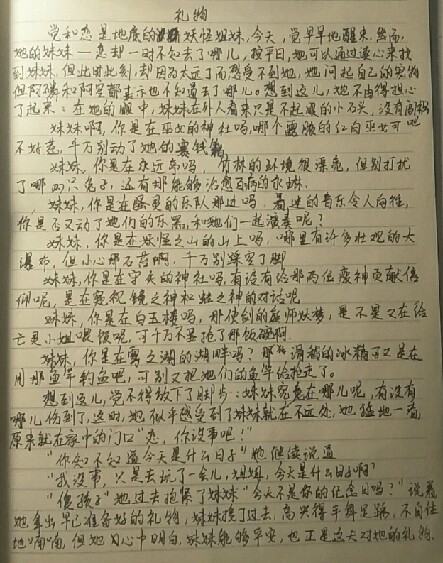 礼物
觉和恋是地底的妖怪姐妹,今天,觉早早地醒来,然而,
她的妹妹——恋却一时不知去了哪儿,按平日,她可以通过读心来找
到妹妹,但此时此刻,却因为太远了而感受不到她,她问起自己的宠物
但阿燐和阿空都表示也不知道去了哪儿。想到这儿,她不由得担心
了起来:在她的眼中,妹妹在外人看来只是不起眼的小石头,没有
妹妹啊,你是在巫女的神社吗,哪个露腋的红白巫女可吧
不好惹,千万别动了她的赛钱箱
妹妹,你是在永远亭吗,竹林的环境很漂亮,但别打扰
了哪两只兔子,还有那能够治愈百病的
妹妹,你是在骚灵的乐队那边吗,着迷的音乐令人向往,
你是否又动了她们的乐器,和她们一起演奏呢?
妹妹,你是在妖怪之山的山上吗,哪里有许多壮观的大
瀑布,但小心那石苔啊,千万别摔空了脚
妹妹,你是在守矢的神社吗,有没有给那两位废神贡献信
仰呢,是在旁观镜之神和蛙之神的对话吧
妹妹,你是在白玉楼吗,那使剑的庭师妖梦,是不是又在给
亡灵小姐喂饭呢,可千万不要抢了那饭碗啊
妹妹,你是在雾之湖的湖畔吗?那滑稽的冰精可又是在
用那鱼竿钓鱼吧,可别又把她们的鱼竿给抢走了。
想到这儿,觉不得放下了脚步:妹妹究竟在哪儿呢,有没有
哪儿伤到了,这时,她似乎感受到了妹妹就在不远处,她猛地一看,
原来就在家中的门口“恋,你没事吧!”
“你知不知道今天是什么日子”她继续说道
“我没事,只是去玩了一会儿,姐姐,今天是什么日子啊?
“傻孩子”她过去抱紧了妹妹“今天不是你的纪念日吗?”说着
她拿出早已准备好的礼物,妹妹接了过去,高兴得手舞足蹈,不自住
地喃喃,但她内心中明白,妹妹能够平安,也正是这天对她的礼物。